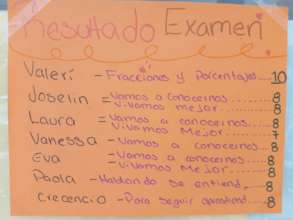 Resultado Examen
Valeri - Fracciones y Porcentajes...10
Joselin = Vamos a conocernos........8
Vivamos mejor.....8
Laura = Vamos a conocernos......8
Vivamos Mejor......7
Vanessa - Vamos a conocernos...8
Eva = Vamos a conocernos.....8
Vivamos Mejor......8
Paola - Hablando se entiend..8
Crecencio - Para seguir aprendiend..8